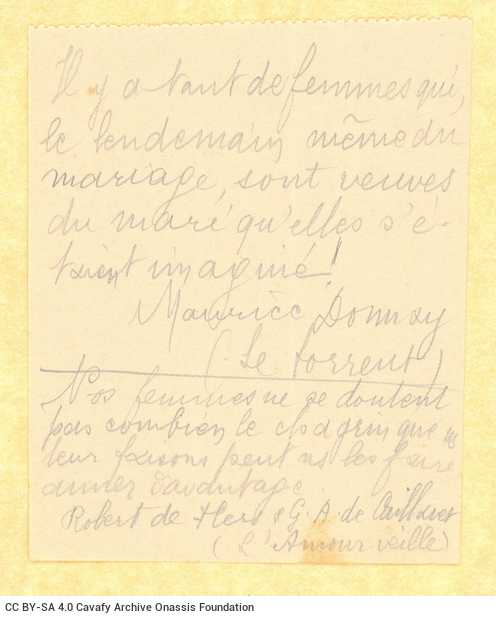 Il y a tant de femmes qui,
le lendemain même du
mariage, sont veuves
du mari qu'elles s'é-
taient imaginé!
Maurice Donnay
(Le torrent)
Nos femmes ne se doutent
pas combien le chagrin que ns
leur faisons peut ns les faire
aimer davantage.
Robert de Flers & G. A. de Caillavet
(L'Amour veille)
CC BY-SA 4.0 Cavafy Archive Onassis Foundation